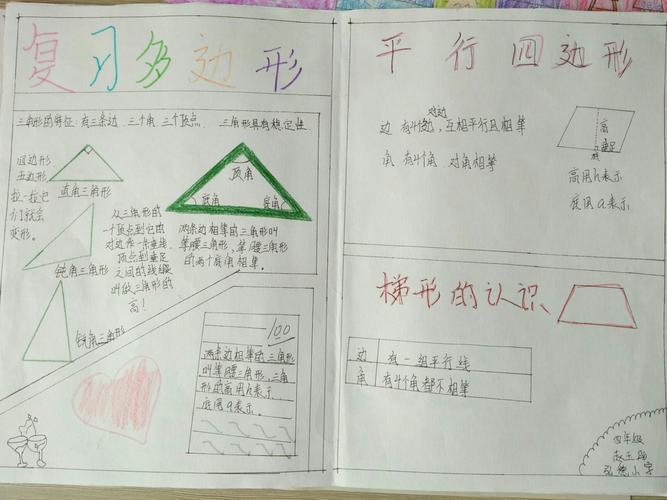 复习多边形
三角形的特征：有三条边、三个角、三个顶点。 三角形具有稳定性。
四边形
五边形
拉一拉它
们就会
变形。
直角三角形
钝角三角形
钝角三角形
从三角形的
一个顶点到它的
对边作一条垂线，
顶点到垂足
之间的线段
叫做三角形的
高！
顶角
底角
底角
两条边相等的三角形叫
等腰三角形，等腰三角形
的两个底角相等。
100
两条边相等的三角形
叫等腰三角形，三角
形的高用h表示
底用a表示。
平行四边形
对边
边 有4条边，互相平行且相等
角 有4个角，对角相等
高
垂足
底
高用h表示
底用a表示
梯形的认识
边 有一组平行线
角 有4个角都不相等
四年级
弘德小学